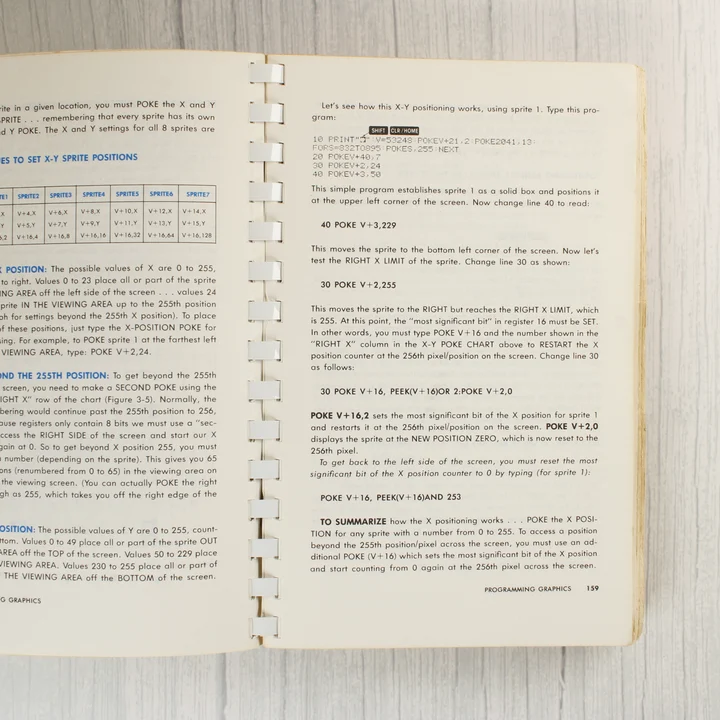 rite in a given location, you must POKE the X and Y
PRITE . . . remembering that every sprite has its own
d Y POKE. The X and Y settings for all 8 sprites are
ES TO SET X-Y SPRITE POSITIONS
TE1 SPRITE2 SPRITE3 SPRITE4 SPRITE5 SPRITE6 SPRITE7
,X V+4,X V+6,X V+8,X V+10,X V+12,X V+14,X
,Y V+5,Y V+7,Y V+9,Y V+11,Y V+13,Y V+15,Y
6,2 V+16,4 V+16,8 V+16,16 V+16,32 V+16,64 V+16,128
X POSITION: The possible values of X are 0 to 255,
to right. Values 0 to 23 place all or part of the sprite
NG AREA off the left side of the screen . . . values 24
prite IN THE VIEWING AREA up to the 255th position
ph for settings beyond the 255th X position). To place
of these positions, just type the X-POSITION POKE for
sing. For example, to POKE sprite 1 at the farthest left
VIEWING AREA, type: POKE V+2,24.
OND THE 255TH POSITION: To get beyond the 255th
screen, you need to make a SECOND POKE using the
IGHT X" row of the chart (Figure 3-5). Normally, the
bering would continue past the 255th position to 256,
ause registers only contain 8 bits we must use a "sec-
ccess the RIGHT SIDE of the screen and start our X
gain at 0. So to get beyond X position 255, you must
number (depending on the sprite). This gives you 65
ons (renumbered from 0 to 65) in the viewing area on
the viewing screen. (You can actually POKE the right
gh as 255, which takes you off the right edge of the
OSITION: The possible values of Y are 0 to 255, count-
ttom. Values 0 to 49 place all or part of the sprite OUT
AREA off the TOP of the screen. Values 50 to 229 place
VIEWING AREA. Values 230 to 255 place all or part of
THE VIEWING AREA off the BOTTOM of the screen.
G GRAPHICS
Let's see how this X-Y positioning works, using sprite 1. Type this pro-
gram:
SHIFT CLR/HOME
10 PRINT" ":V=53248:POKEV+21,2:POKE2041,13:
FORS=832TO895:POKES,255:NEXT
20 POKEV+40,7
30 POKEV+2,24
40 POKEV+3,50
This simple program establishes sprite 1 as a solid box and positions it
at the upper left corner of the screen. Now change line 40 to read:
40 POKE V+3,229
This moves the sprite to the bottom left corner of the screen. Now let's
test the RIGHT X LIMIT of the sprite. Change line 30 as shown:
30 POKE V+2,255
This moves the sprite to the RIGHT but reaches the RIGHT X LIMIT, which
is 255. At this point, the "most significant bit" in register 16 must be SET.
In other words, you must type POKE V+16 and the number shown in the
"RIGHT X" column in the X-Y POKE CHART above to RESTART the X
position counter at the 256th pixel/position on the screen. Change line 30
as follows:
30 POKE V+16, PEEK(V+16)OR 2:POKE V+2,0
POKE V+16,2 sets the most significant bit of the X position for sprite 1
and restarts it at the 256th pixel/position on the screen. POKE V+2,0
displays the sprite at the NEW POSITION ZERO, which is now reset to the
256th pixel.
To get back to the left side of the screen, you must reset the most
significant bit of the X position counter to 0 by typing (for sprite 1):
POKE V+16, PEEK(V+16)AND 253
TO SUMMARIZE how the X positioning works . . . POKE the X POSI-
TION for any sprite with a number from 0 to 255. To access a position
beyond the 255th position/pixel across the screen, you must use an ad-
ditional POKE (V+16) which sets the most significant bit of the X position
and start counting from 0 again at the 256th pixel across the screen.
PROGRAMMING GRAPHICS 159